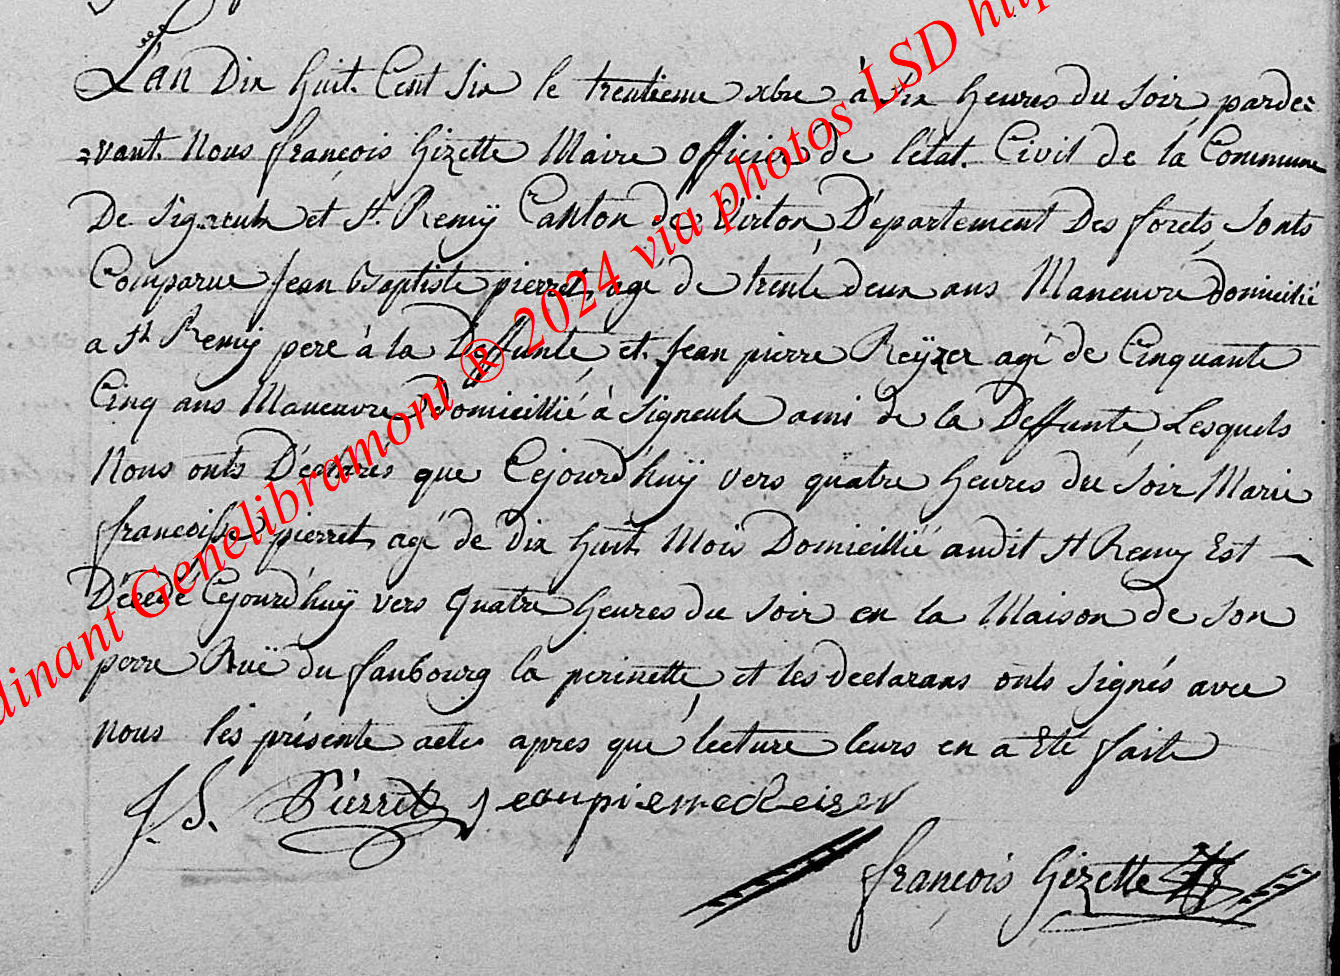 L'an Dix huit Cent Six le trentieme xbre à six heures du soir parde=
=vant Nous françois Gizette Maire officier de l'état Civil de la Commune
De Signeulx et St Remÿ Canton de Virton Département Des forets, sonts
Comparue Jean Baptiste pierret, agé de trente deux ans Maneuvre domicilié
a St Remÿ pere à la Deffunte, et Jean pierre Reÿzer agé de Cinquante
Cinq ans Maneuvre Domicillié à Signeulx ami de la Deffunte, Lesquels
Nous onts Déclarés que Cejourd'huÿ vers quatre heures du Soir Marie
françoisse pierret, agé de dix huit Mois Domicillié audit St Remy Est
Décédé Cejourd'huÿ vers Quatre heures du Soir en la Maison de Son
perre Ruë du faubourg la perinette, et les declarans onts Signés avec
nous les présente acte apres que lecture leurs en a Eté faite
J. B. Pierret Jean pierre Reizer
françois Gizette
dinant Genelibramont ® 2024 via photos LSD